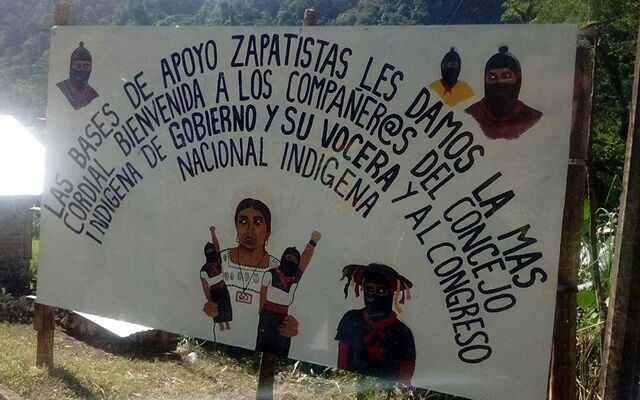 LAS BASES DE APOYO ZAPATISTAS LES DAMOS LA MAS
CORDIAL BIENVENIDA A LOS COMPAÑER@S DEL CONCEJO
INDIGENA DE GOBIERNO Y SU VOCERA Y AL CONGRESO
NACIONAL INDIGENA